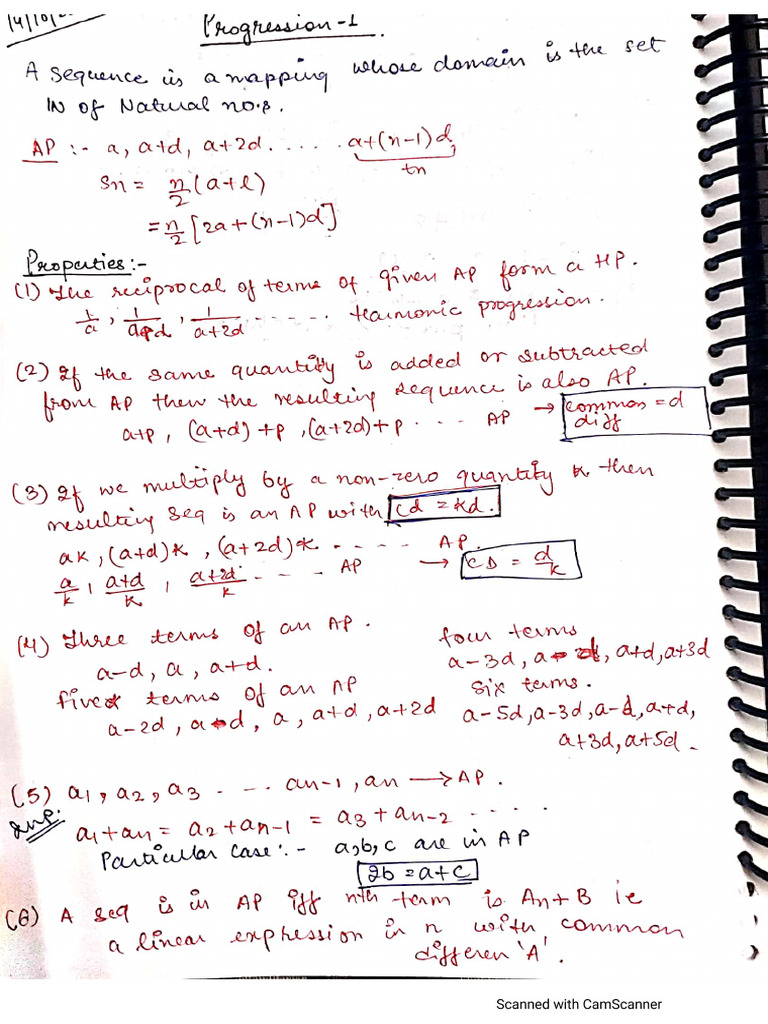 14/10/
Progression-1
A sequence is a mapping whose domain is the set
IN of Natural no.s.
AP :- a, a+d, a+2d. . . . . . a+(n-1)d,
tn
Sn = n/2 (a+l)
= n/2 [2a+(n-1)d]
Properties:-
(1) The reciprocal of terms of given AP form a HP.
1/a , 1/a+d , 1/a+2d . . . . . Harmonic progression.
(2) If the same quantity is added or subtracted
from AP then the resulting sequence is also AP.
a+p, (a+d)+p, (a+2d)+p . . . . AP → common diff = d
(3) If we multiply by a non-zero quantity k then
resulting seq is an AP with cd = kd.
ak, (a+d)k, (a+2d)k . . . . . AP.
a/k , a+d/k , a+2d/k . . . . AP → CD = d/k
(4) Three terms of an AP.
a-d, a, a+d.
five terms of an AP
a-2d, a-d, a, a+d, a+2d
four terms
a-3d, a-d, a+d, a+3d
six terms.
a-5d, a-3d, a-d, a+d,
a+3d, a+5d.
(5) a1, a2, a3 . . . . an-1, an → AP.
Imp.
a1+an = a2+an-1 = a3+an-2 . . . . .
Particular case:- a,b,c are in AP
2b = a+c
(6) A seq is in AP iff nth term is An+B ie
a linear expression in n with common
differen 'A'.
Scanned with CamScanner